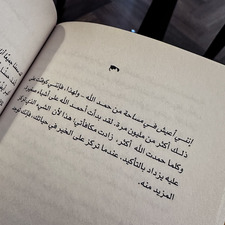 إنني أعيش في مساحة من حمد الله .. ولهذا، فإنني كوفئت على
ذلك أكثر من مليون مرة. لقد بدأت أحمد الله على أشياء صغيرة
وكلما حمدت الله أكثر، زادت مكافأتي؛ هذا لأن الشيء الذي تركز
عليه يزداد بالتأكيد. عندما تركز على الخير في حياتك، فإنك توجد
المزيد منه.